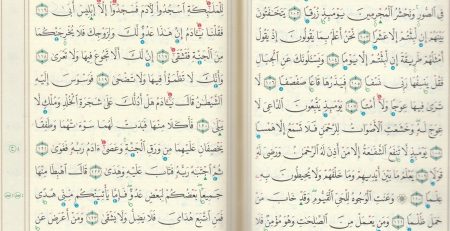 فِى ٱلصُّورِ وَنَحْشُرُ ٱلْمُجْرِمِينَ يَوْمَئِذٍ زُرْقًا ١٠٢ يَتَخَـٰفَتُونَ
بَيْنَهُمْ إِن لَّبِثْتُمْ إِلَّا عَشْرًا ١٠٣ نَّحْنُ أَعْلَمُ بِمَا يَقُولُونَ إِذْ يَقُولُ
أَمْثَلُهُمْ طَرِيقَةً إِن لَّبِثْتُمْ إِلَّا يَوْمًا ١٠٤ وَيَسْـَٔلُونَكَ عَنِ ٱلْجِبَالِ
فَقُلْ يَنسِفُهَا رَبِّى نَسْفًا ١٠٥ فَيَذَرُهَا قَاعًا صَفْصَفًا ١٠٦ لَّا
تَرَىٰ فِيهَا عِوَجًا وَلَآ أَمْتًا ١٠٧ يَوْمَئِذٍ يَتَّبِعُونَ ٱلدَّاعِىَ لَا
عِوَجَ لَهُۥ وَخَشَعَتِ ٱلْأَصْوَاتُ لِلرَّحْمَـٰنِ فَلَا تَسْمَعُ إِلَّا هَمْسًا
١٠٨ يَوْمَئِذٍ لَّا تَنفَعُ ٱلشَّفَـٰعَةُ إِلَّا مَنْ أَذِنَ لَهُ ٱلرَّحْمَـٰنُ وَرَضِىَ لَهُۥ
قَوْلًا ١٠٩ يَعْلَمُ مَا بَيْنَ أَيْدِيهِمْ وَمَا خَلْفَهُمْ وَلَا يُحِيطُونَ بِهِۦ
عِلْمًا ١١٠ وَعَنَتِ ٱلْوُجُوهُ لِلْحَىِّ ٱلْقَيُّومِ وَقَدْ خَابَ مَنْ
حَمَلَ ظُلْمًا ١١١ وَمَن يَعْمَلْ مِنَ ٱلصَّـٰلِحَـٰتِ وَهُوَ مُؤْمِنٌ
لِلْمَلَـٰٓئِكَةِ ٱسْجُدُوا۟ لِـَٔادَمَ فَسَجَدُوٓا۟ إِلَّآ إِبْلِيسَ أَبَىٰ ١١٦
فَقُلْنَا يَـٰٓـَٔادَمُ إِنَّ هَـٰذَا عَدُوٌّ لَّكَ وَلِزَوْجِكَ فَلَا يُخْرِجَنَّكُمَا
مِنَ ٱلْجَنَّةِ فَتَشْقَىٰٓ ١١٧ إِنَّ لَكَ أَلَّا تَجُوعَ فِيهَا وَلَا تَعْرَىٰ ١١٨
وَأَنَّكَ لَا تَظْمَؤُا۟ فِيهَا وَلَا تَضْحَىٰ ١١٩ فَوَسْوَسَ إِلَيْهِ
ٱلشَّيْطَـٰنُ قَالَ يَـٰٓـَٔادَمُ هَلْ أَدُلُّكَ عَلَىٰ شَجَرَةِ ٱلْخُلْدِ وَمُلْكٍ لَّا
يَبْلَىٰ ١٢٠ فَأَكَلَا مِنْهَا فَبَدَتْ لَهُمَا سَوْءَٰتُهُمَا وَطَفِقَا
يَخْصِفَانِ عَلَيْهِمَا مِن وَرَقِ ٱلْجَنَّةِ وَعَصَىٰٓ ءَادَمُ رَبَّهُۥ فَغَوَىٰ ١٢١
ثُمَّ ٱجْتَبَـٰهُ رَبُّهُۥ فَتَابَ عَلَيْهِ وَهَدَىٰ ١٢٢ قَالَ ٱهْبِطَا مِنْهَا
جَمِيعًۢا بَعْضُكُمْ لِبَعْضٍ عَدُوٌّ فَإِمَّا يَأْتِيَنَّكُم مِّنِّى هُدًى
فَمَنِ ٱتَّبَعَ هُدَاىَ فَلَا يَضِلُّ وَلَا يَشْقَىٰ ١٢٣ وَمَنْ أَعْرَضَ عَن